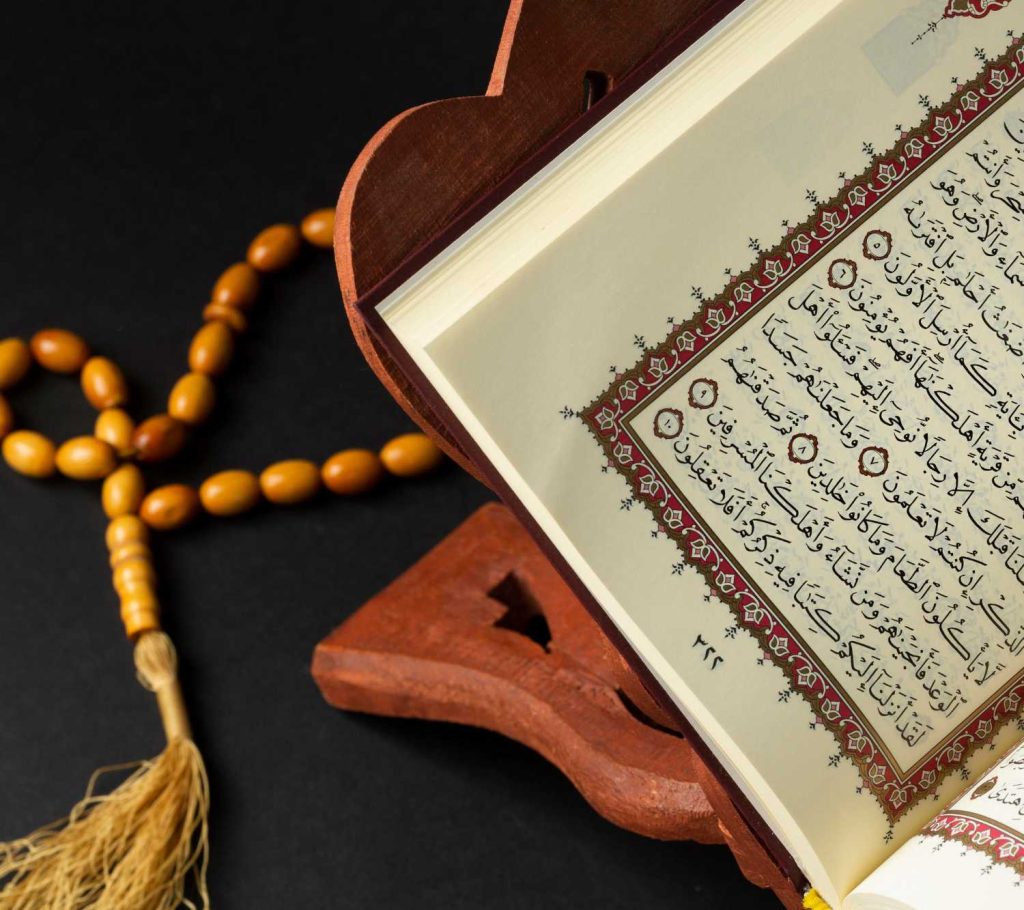 وَأَنتُمْ
ٱلسَّمَآءِ وَٱلْأَرْضِ وَهُوَ
أَضْغَٰثُ أَحْلَٰمٍۭ بَلِ ٱفْتَرَىٰهُ
بِـَٔايَةٍ كَمَآ أُرْسِلَ ٱلْأَوَّلُونَ ٥
مِّن قَرْيَةٍ أَهْلَكْنَٰهَآ أَفَهُمْ يُؤْمِنُونَ ٦
قَبْلَكَ إِلَّا رِجَالًا نُّوحِىٓ إِلَيْهِمْ فَسْـَٔلُوٓا۟ أَهْلَ
ٱلذِّكْرِ إِن كُنتُمْ لَا تَعْلَمُونَ ٧ وَمَا جَعَلْنَٰهُمْ جَسَدًا
لَّا يَأْكُلُونَ ٱلطَّعَامَ وَمَا كَانُوا۟ خَٰلِدِينَ ٨ ثُمَّ صَدَقْنَٰهُمُ
ٱلْوَعْدَ فَأَنجَيْنَٰهُمْ وَمَن نَّشَآءُ وَأَهْلَكْنَا ٱلْمُسْرِفِينَ ٩
لَقَدْ أَنزَلْنَآ إِلَيْكُمْ كِتَٰبًا فِيهِ ذِكْرُكُمْ أَفَلَا تَعْقِلُونَ ١٠
٣٢٢